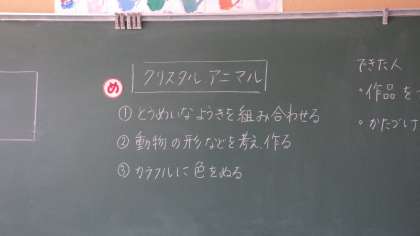 め
クリスタルアニマル
①とうめいなようきを組み合わせる
②動物の形などを考え作る
③カラフルに色をぬる
できた人
・作品を
・かたづけ